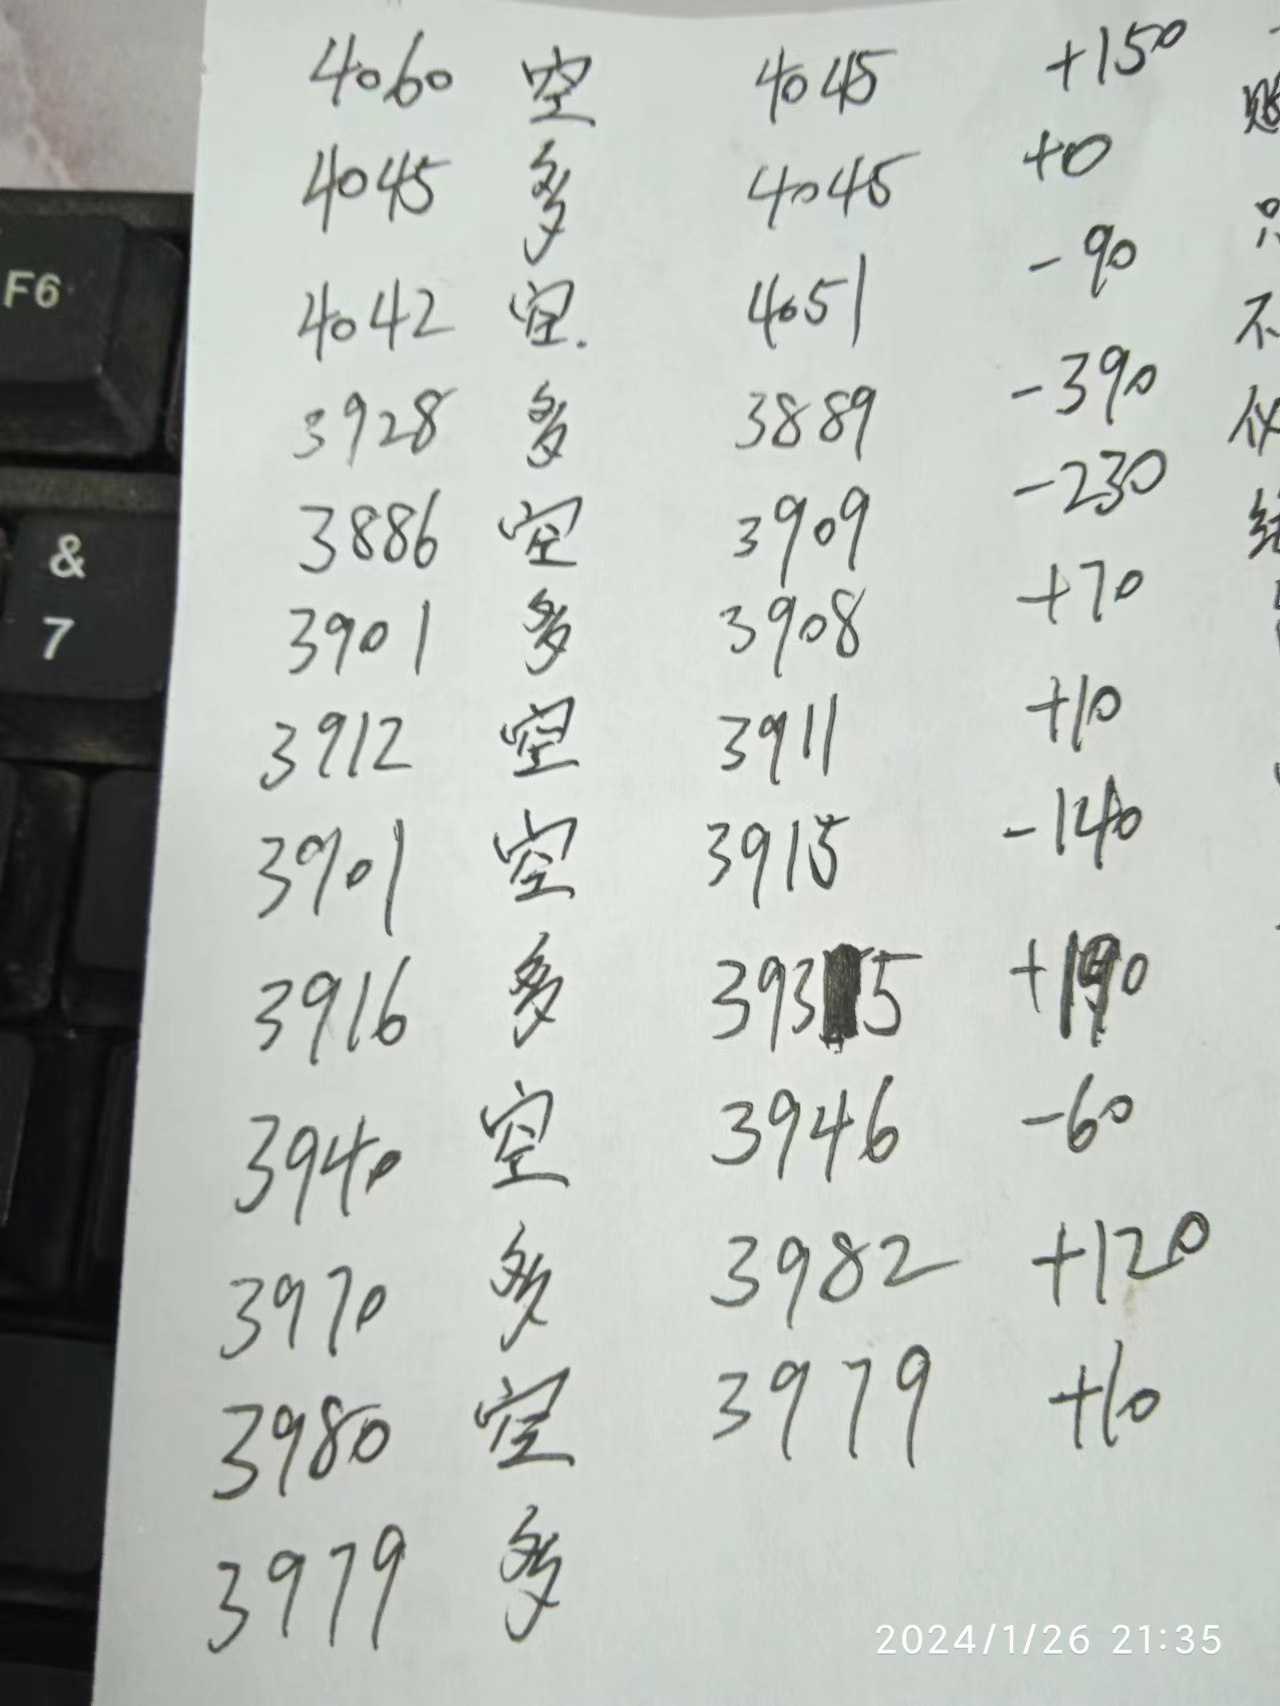 4060 空 4045 +150
4045 多 4045 +0
4042 空. 4051 -90
3928 多 3889 -390
3886 空 3909 -230
3901 多 3908 +70
3912 空 3911 +10
3901 空 3915 -140
3916 多 3935 +190
3940 空 3946 -60
3970 多 3982 +120
3980 空 3979 +10
3979 多
只
不
仪
F6
&
7
2024/1/26 21:35